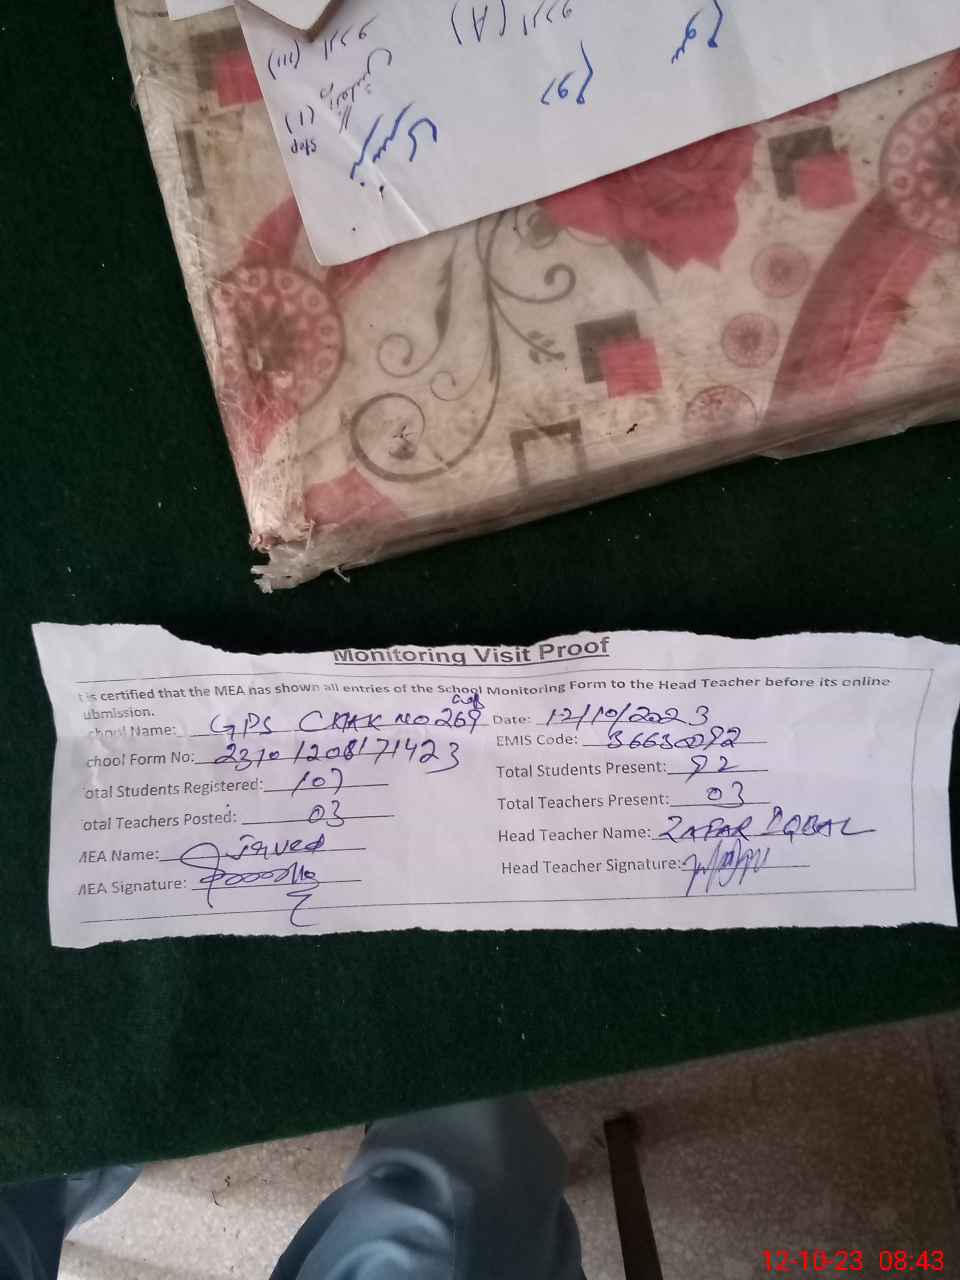 Monitoring Visit Proof
t is certified that the MEA has shown all entries of the School Monitoring Form to the Head Teacher before its online
ubmission.
chool Name: GPS CHAK NO 269 Date: 12/10/2023
chool Form No: 23101208171423 EMIS Code: 36630092
otal Students Registered: 107 Total Students Present: 92
otal Teachers Posted: 03 Total Teachers Present: 03
MEA Name: Javed Head Teacher Name: ZAFAR IQBAL
MEA Signature: Head Teacher Signature:
step (I)
(III)
(A)
12-10-23 08:43